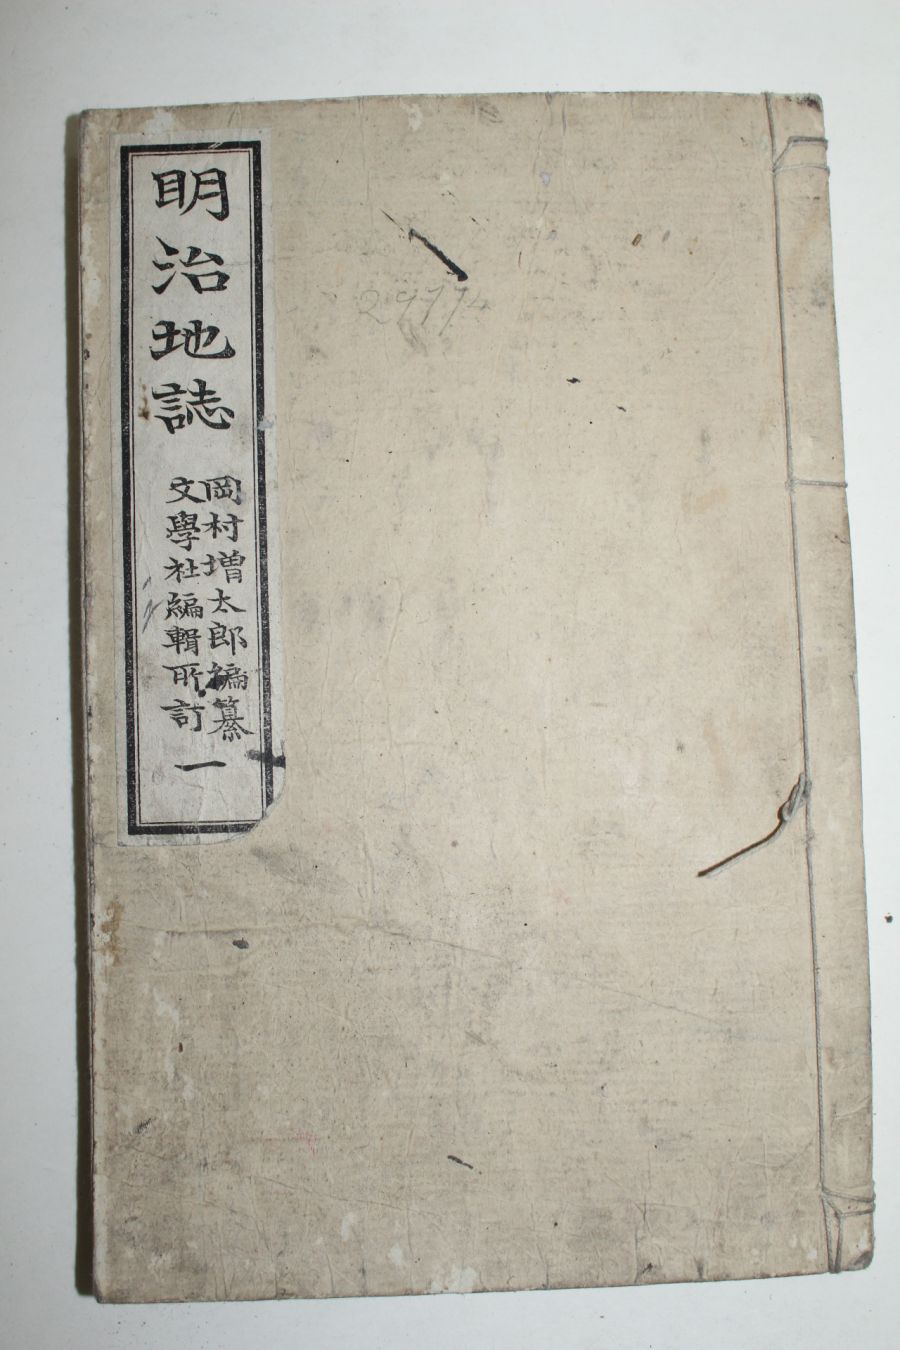 明治地誌
岡村增太郎編纂
文學社編輯所訂
一
29774